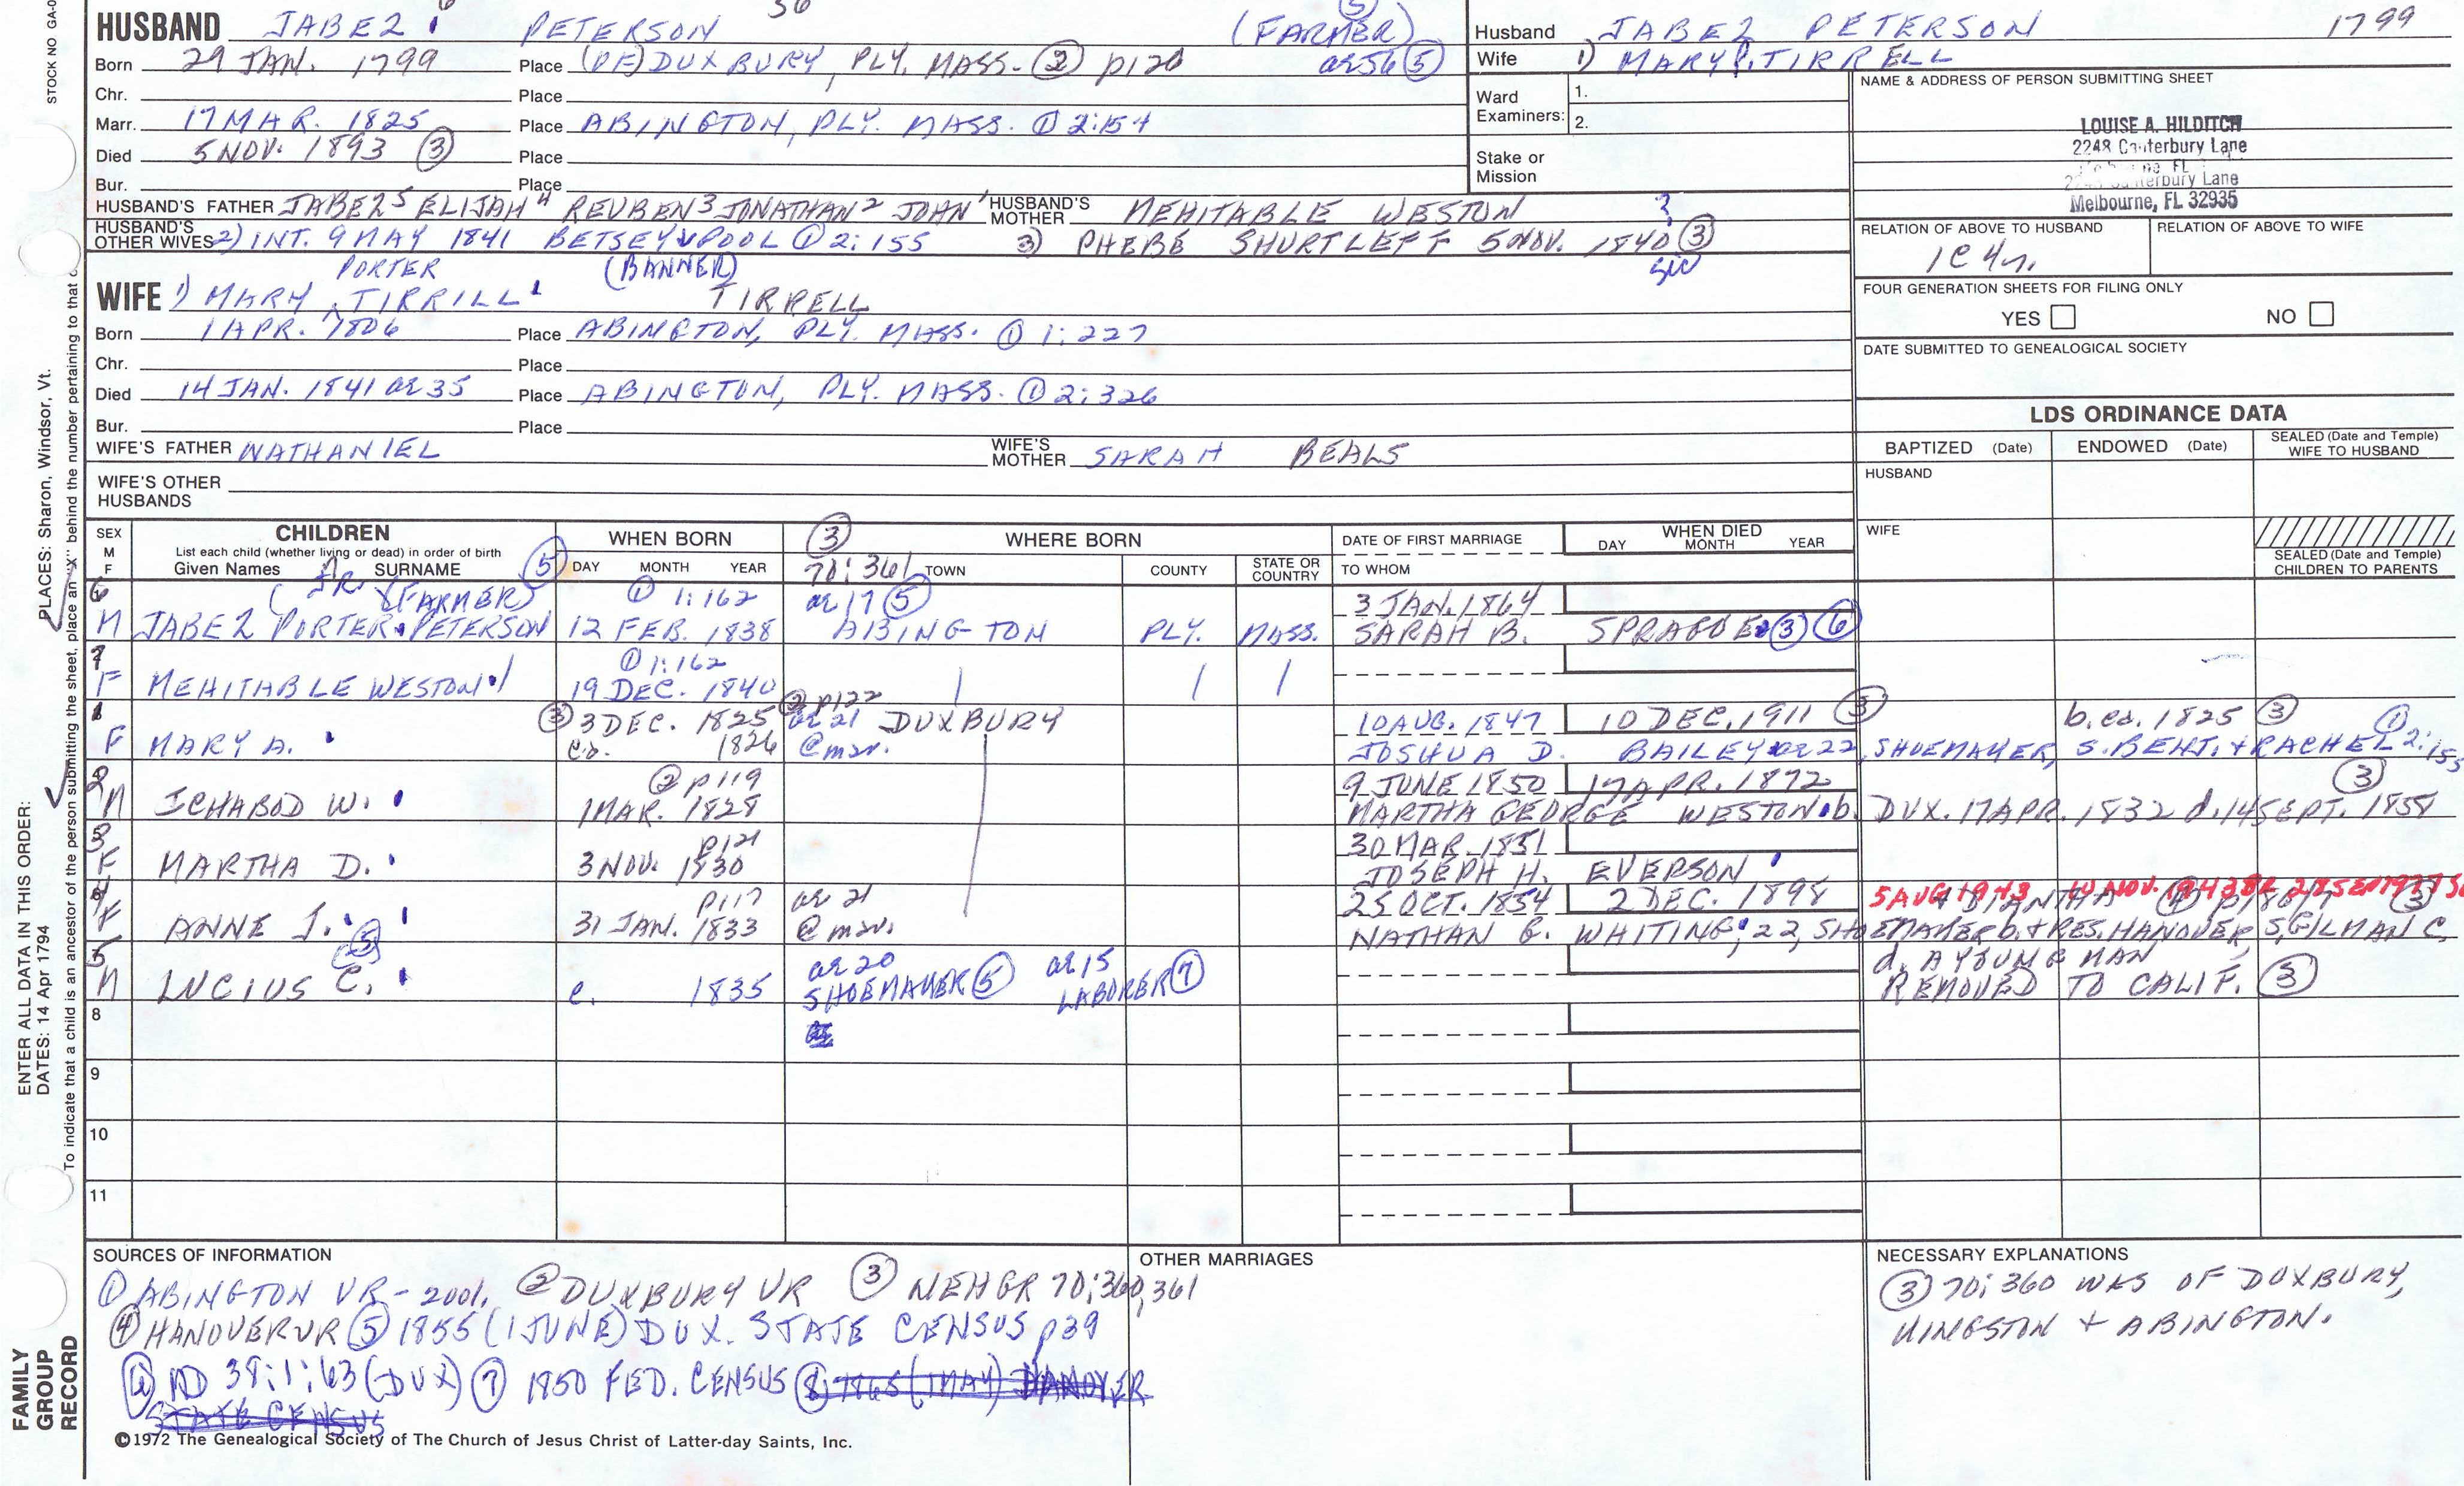 STOCK NO GA-0
HUSBAND JABEZ PETERSON (FARMER) 5
Born 29 JAN. 1799 Place (PE) DUXBURY, PLY. MASS. ② p120 ae56 ⑤
Chr. Place
Marr. 17 MAR. 1825 Place ABINGTON, PLY. MASS. ① 2:154
Died 5 NOV. 1893 ③ Place
Bur. Place
HUSBAND'S FATHER JABEZ5 ELIJAH4 REUBEN3 JONATHAN2 JOHN1 HUSBAND'S MOTHER MEHITABLE WESTON
HUSBAND'S OTHER WIVES 2) INT. 9 MAY 1841 BETSEY POOL ① 2:155 3) PHEBE SHURTLEFF 5 NOV. 1840 ③
? sic
PORTER (BANNER)
WIFE 1) MARY TIRRILL TIRRELL
Born 1 APR. 1806 Place ABINGTON, PLY. MASS. ① 1:227
Chr. Place
Died 14 JAN. 1841 ae 35 Place ABINGTON, PLY. MASS. ① 2:326
Bur. Place
WIFE'S FATHER NATHANIEL WIFE'S MOTHER SARAH BEALS
WIFE'S OTHER HUSBANDS
Husband JABEZ PETERSON 1799
Wife 1) MARY P. TIRRELL
Ward Examiners: 1.
2.
Stake or Mission
NAME & ADDRESS OF PERSON SUBMITTING SHEET
LOUISE A. HILDITCH
2248 Canterbury Lane
Melbourne, FL 32935
RELATION OF ABOVE TO HUSBAND RELATION OF ABOVE TO WIFE
1C 4r.
FOUR GENERATION SHEETS FOR FILING ONLY
YES NO
DATE SUBMITTED TO GENEALOGICAL SOCIETY
LDS ORDINANCE DATA
BAPTIZED (Date) ENDOWED (Date) SEALED (Date and Temple) WIFE TO HUSBAND
HUSBAND
WIFE
SEALED (Date and Temple) CHILDREN TO PARENTS
SEX M F
CHILDREN
List each child (whether living or dead) in order of birth
Given Names SURNAME ⑤
WHEN BORN
DAY MONTH YEAR
③ 70:361
WHERE BORN
TOWN COUNTY STATE OR COUNTRY
DATE OF FIRST MARRIAGE
TO WHOM
WHEN DIED
DAY MONTH YEAR
6 JR. (FARMER) ① 1:162 ae 17 ⑤ 3 JAN. 1864
M JABEZ PORTER PETERSON 12 FEB. 1838 ABINGTON PLY. MASS. SARAH B. SPRAGUE ③ ⑥
7 ① 1:162
F MEHITABLE WESTON 19 DEC. 1840
1 ③ 3 DEC. 1825 ② p122 ae 21 DUXBURY 10 AUG. 1847 10 DEC. 1911 ③ b. ca. 1825 ③ ①
F MARY A. ca. 1826 @ mar. JOSHUA D. BAILEY ae 22, SHOEMAKER, S. BENJ. + RACHEL 2:155
2 ② p119 9 JUNE 1850 17 APR. 1872 ③
M ICHABOD W. 1 MAR. 1828 MARTHA GEORGE WESTON b. DUX. 17 APR. 1832 d. 14 SEPT. 1858
3 p121 30 MAR. 1851
F MARTHA D. 3 NOV. 1830 JOSEPH H. EVERSON
4 p117 ae 21 25 OCT. 1854 2 DEC. 1898 5 AUG 1943 10 NOV. 1943
F ANNE J. 31 JAN. 1833 @ mar. NATHAN G. WHITING, 22, SHOEMAKER b. + RES. HANOVER, S. GILMAN C.
5 ⑤ ae 20 ae 15 d. A YOUNG MAN
M LUCIUS C. c. 1835 SHOEMAKER ⑤ LABORER ⑦ REMOVED TO CALIF. ③
8
9
10
11
SOURCES OF INFORMATION
① ABINGTON VR - 2001. ② DUXBURY VR ③ NEHGR 70:360,361
④ HANOVER VR ⑤ 1855 (1 JUNE) DUX. STATE CENSUS p39
⑥ AD 38:1:63 (DUX) ⑦ 1850 FED. CENSUS ⑧ 1865 (1 MAY) HANOVER
STATE CENSUS
OTHER MARRIAGES
NECESSARY EXPLANATIONS
③ 70:360 WAS OF DUXBURY,
KINGSTON + ABINGTON.
©1972 The Genealogical Society of The Church of Jesus Christ of Latter-day Saints, Inc.
FAMILY GROUP RECORD
ENTER ALL DATA IN THIS ORDER:
DATES: 14 Apr 1794
PLACES: Sharon, Windsor, Vt.
To indicate that a child is an ancestor of the person submitting the sheet, place an "X" behind the number pertaining to that